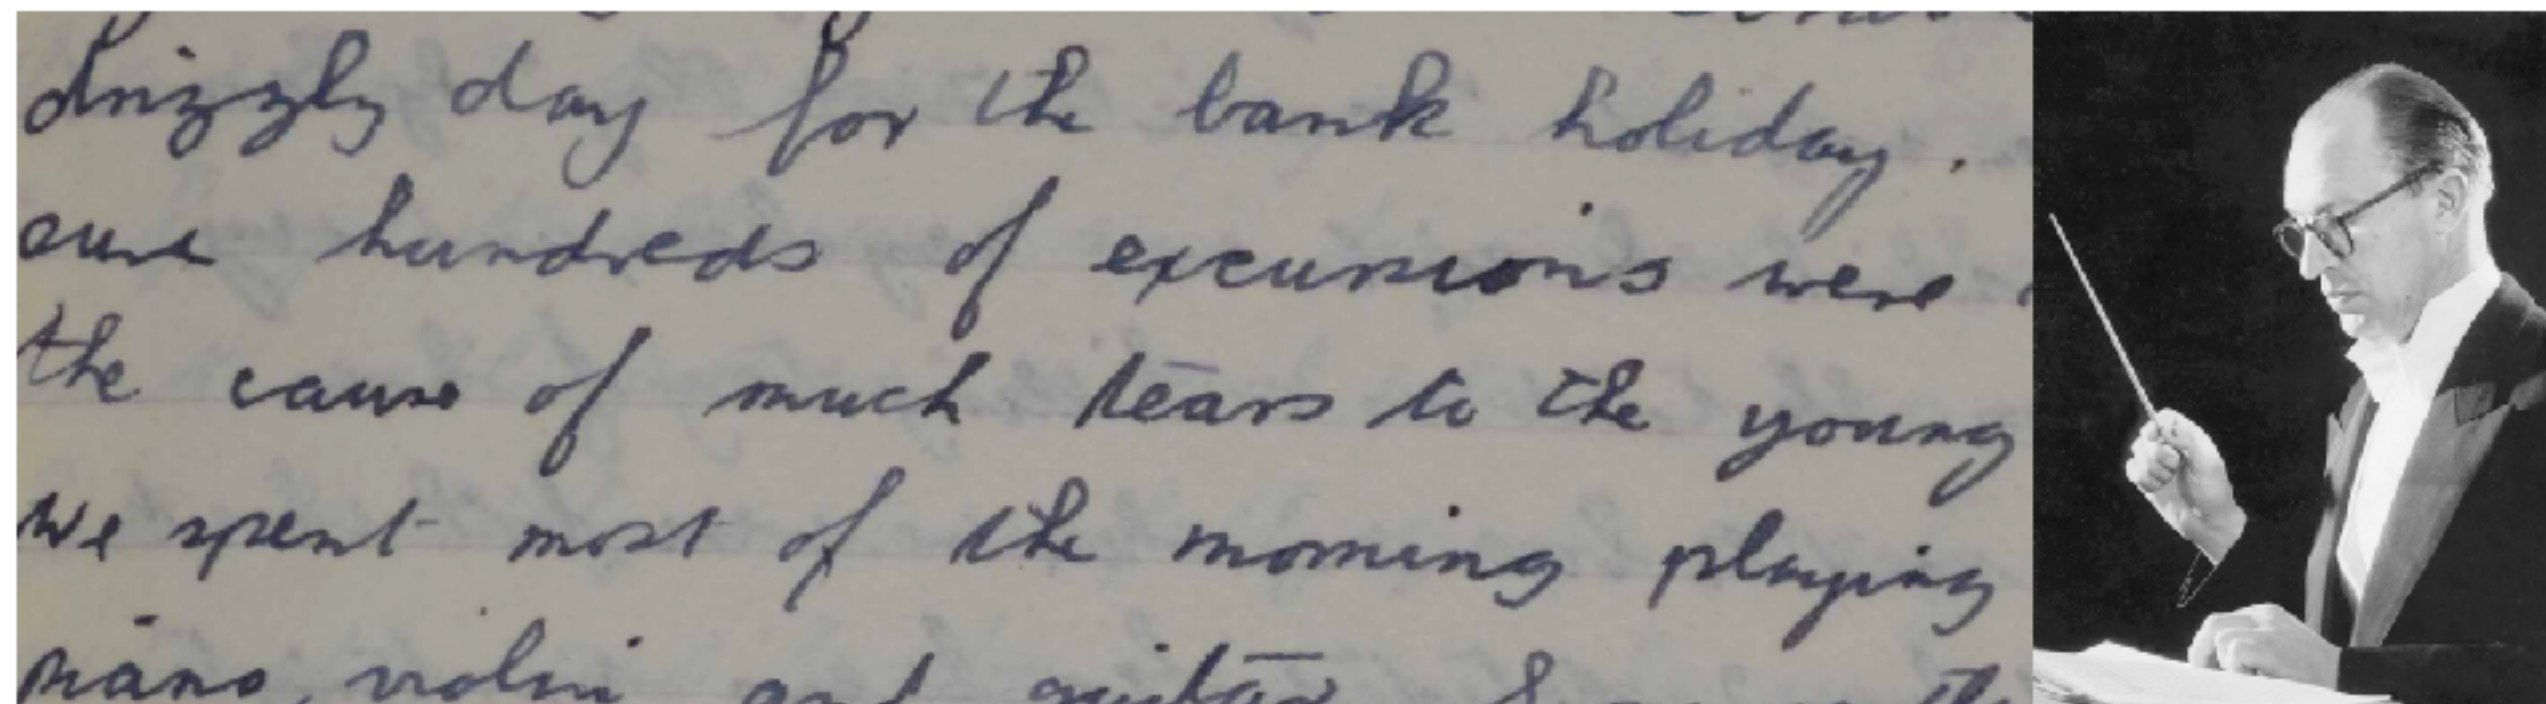 drizzly day for the bank holiday.
sure hundreds of excursions were
the cause of much tears to the young
We spent most of the morning playing
piano, violin and guitar